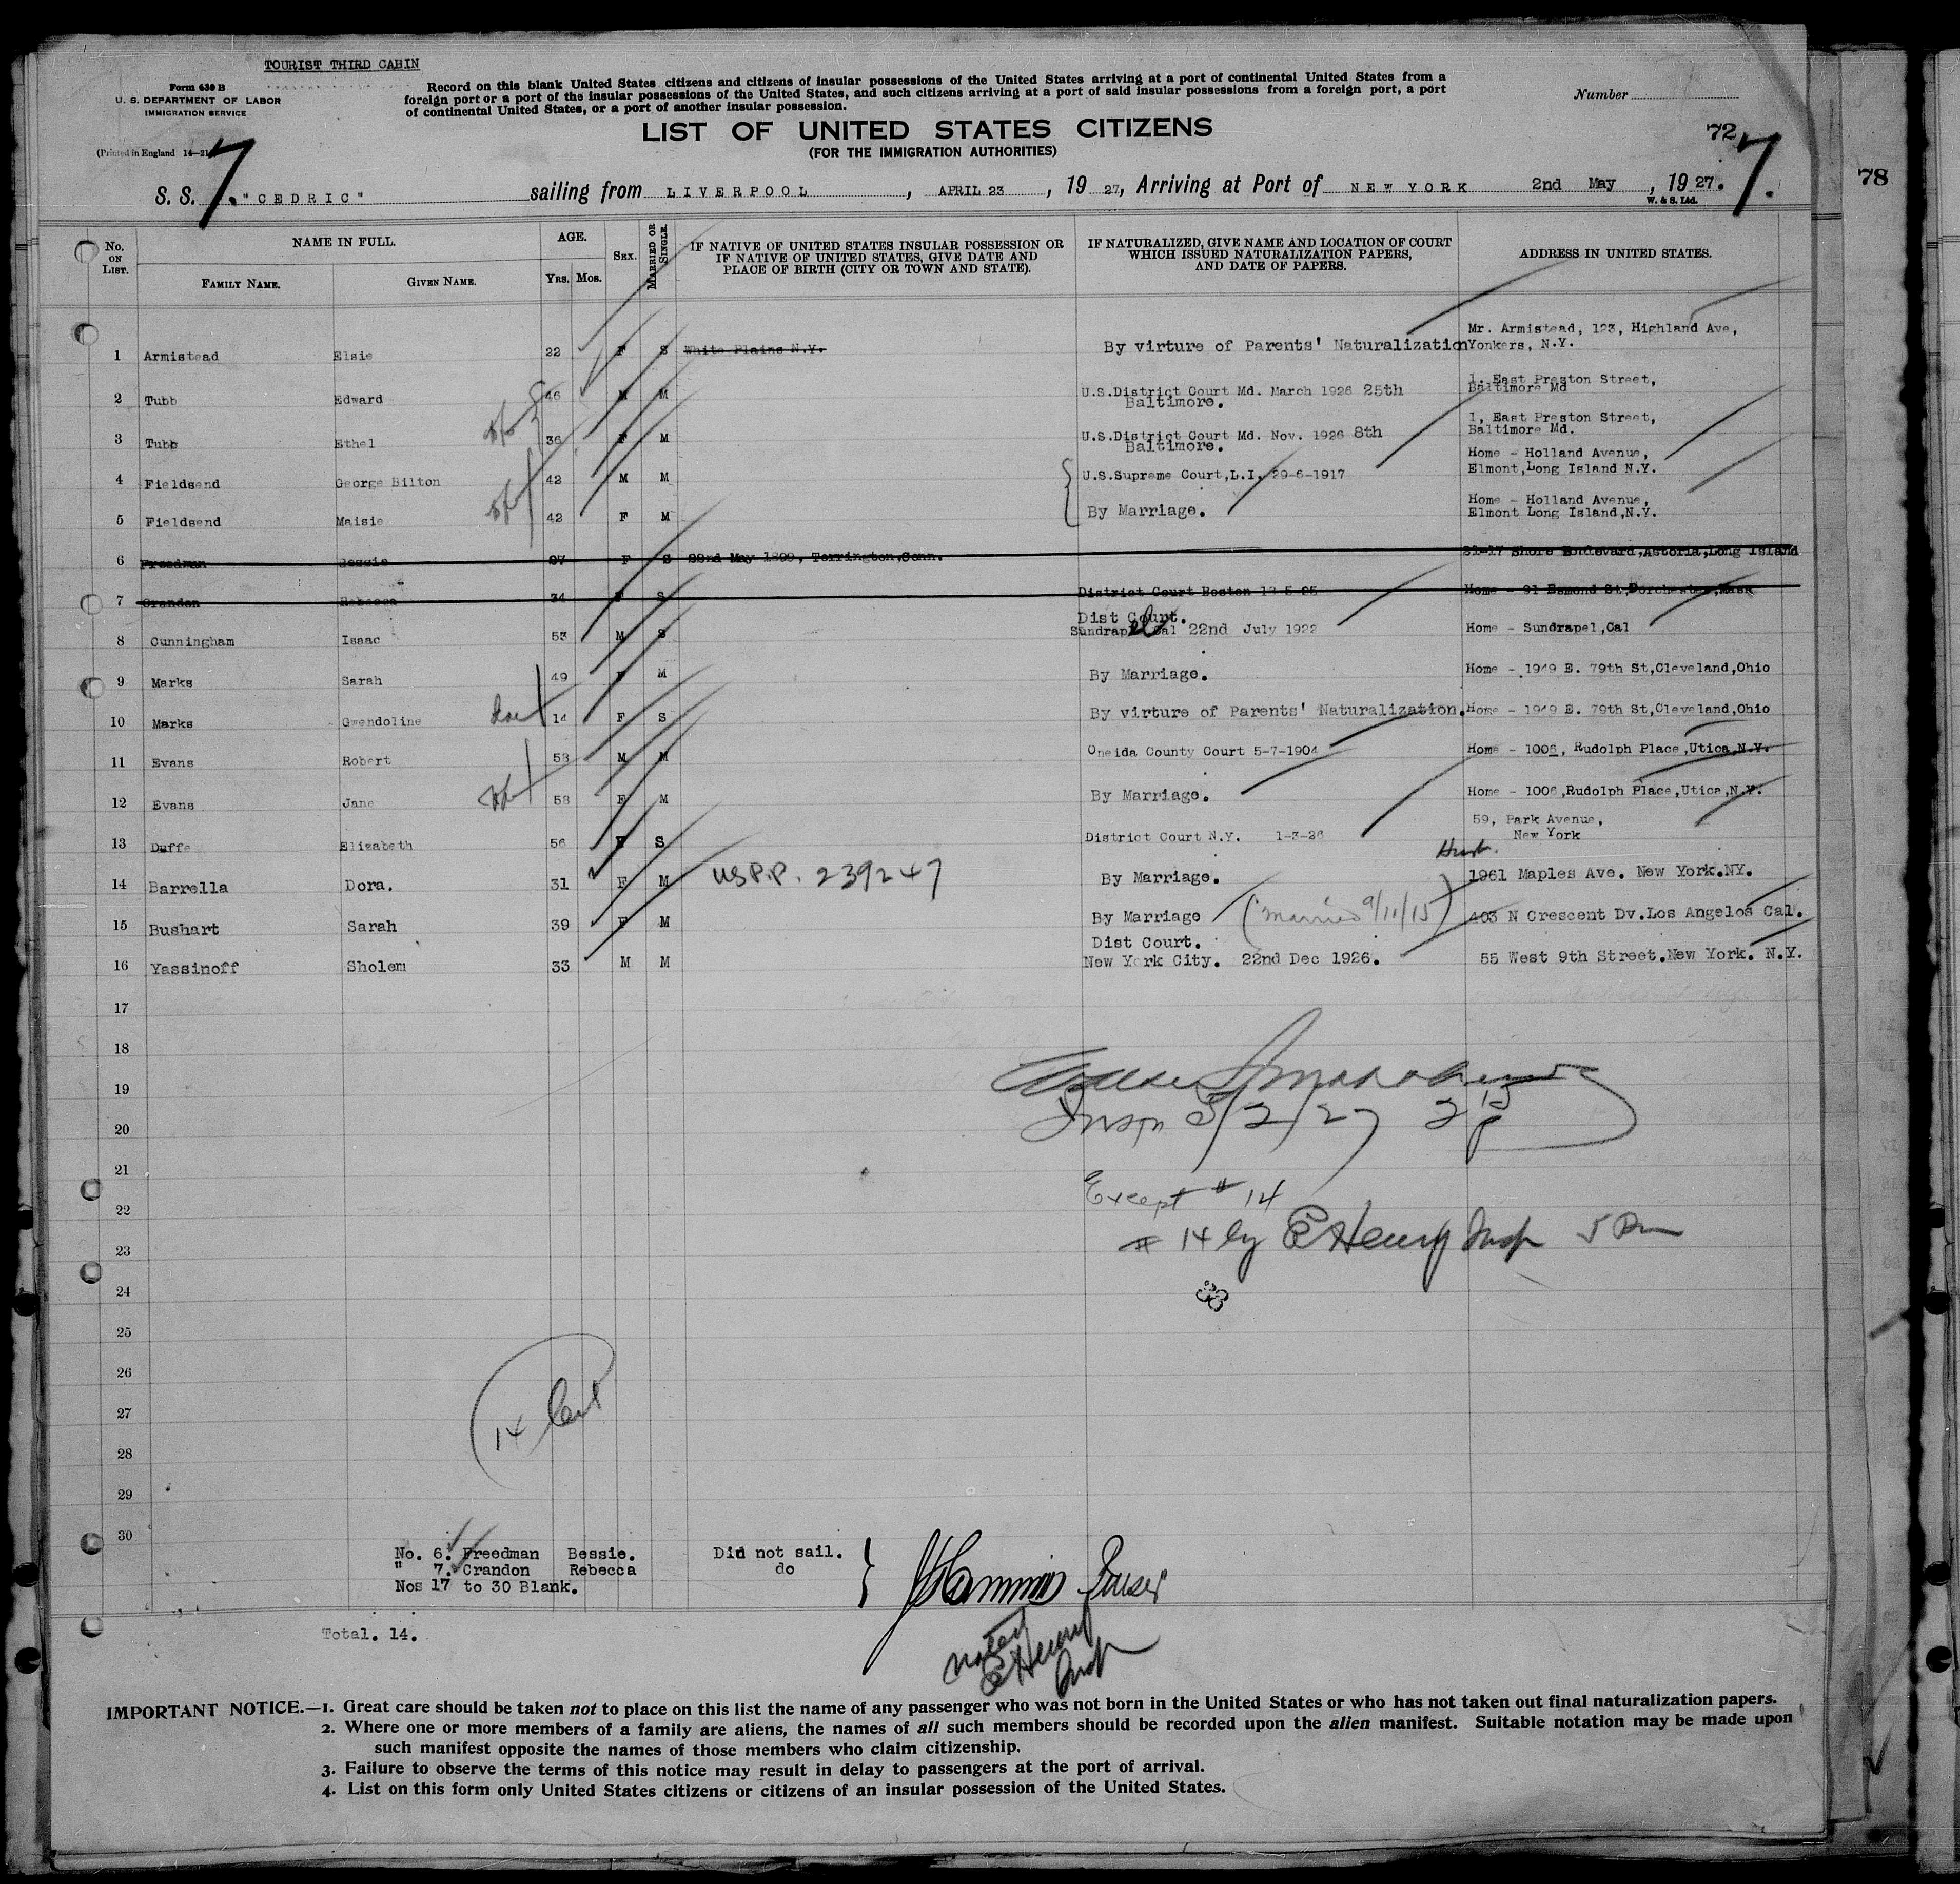 TOURIST THIRD CABIN
Form 630 B
U. S. DEPARTMENT OF LABOR
IMMIGRATION SERVICE
(Printed in England 14—21
Record on this blank United States citizens and citizens of insular possessions of the United States arriving at a port of continental United States from a
foreign port or a port of the insular possessions of the United States, and such citizens arriving at a port of said insular possessions from a foreign port, a port
of continental United States, or a port of another insular possession.
Number
LIST OF UNITED STATES CITIZENS
(FOR THE IMMIGRATION AUTHORITIES)
72
7.
7.
78
S. S. "CEDRIC" sailing from LIVERPOOL, APRIL 23, 19 27, Arriving at Port of NEW YORK 2nd May, 19 27.
W. & S. Ltd.
No. ON LIST. NAME IN FULL. AGE. SEX. MARRIED OR SINGLE. IF NATIVE OF UNITED STATES INSULAR POSSESSION OR IF NATIVE OF UNITED STATES, GIVE DATE AND PLACE OF BIRTH (CITY OR TOWN AND STATE). IF NATURALIZED, GIVE NAME AND LOCATION OF COURT WHICH ISSUED NATURALIZATION PAPERS, AND DATE OF PAPERS. ADDRESS IN UNITED STATES.
FAMILY NAME. GIVEN NAME. Yrs. Mos.
1 Armistead Elsie 22 F S White Plains N.Y. By virture of Parents' Naturalization Mr. Armistead, 123, Highland Ave, Yonkers, N.Y.
2 Tubb Edward 46 M M U.S.District Court Md. March 1926 25th Baltimore. 1, East Preston Street, Baltimore Md
3 Tubb Ethel 36 F M U.S.District Court Md. Nov. 1926 8th Baltimore. 1, East Preston Street, Baltimore Md.
4 Fieldsend George Bilton 42 M M U.S.Supreme Court,L.I. 29-6-1917 Home - Holland Avenue, Elmont,Long Island N.Y.
5 Fieldsend Maisie 42 F M By Marriage. Home - Holland Avenue, Elmont Long Island,N.Y.
6 Freedman Bessie 27 F S 22nd May 1899, Torrington,Conn. 21-17 Shore Boulevard,Astoria,Long Island
7 Crandon Rebecca 34 F S District Court Boston Home - 91 Esmond St,Dorchester,Mass
8 Cunningham Isaac 53 M S Dist Court. Sundrapel Cal 22nd July 1922 Home - Sundrapel,Cal
9 Marks Sarah 49 F M By Marriage. Home - 1949 E. 79th St,Cleveland,Ohio
10 Marks Gwendoline 14 F S By virture of Parents' Naturalization. Home - 1949 E. 79th St,Cleveland,Ohio
11 Evans Robert 58 M M Oneida County Court 5-7-1904 Home - 1006, Rudolph Place,Utica,N.Y.
12 Evans Jane 58 F M By Marriage. Home - 1006,Rudolph Place,Utica,N.Y.
13 Duffe Elizabeth 56 F S District Court N.Y. 1-3-26 59, Park Avenue, New York
Husb.
14 Barrella Dora. 31 F M US P.P. 239247 By Marriage. 1961 Maples Ave. New York.NY.
15 Bushart Sarah 39 F M By Marriage (married 9/11/15) 403 N Crescent Dv.Los Angelos Cal.
16 Yassinoff Sholem 33 M M Dist Court. New York City. 22nd Dec 1926. 55 West 9th Street.New York. N.Y.
17
18
19
20
21
22
23
24
25
26
27
28
29
30
Insp 5/2/27 2 15 p
Except # 14
# 14 by E Henry Insp 5 Pm
14
No. 6. Freedman Bessie. Did not sail.
" 7. Crandon Rebecca do
Nos 17 to 30 Blank.
Purser
noted
E Henry
Insp
Total. 14.
IMPORTANT NOTICE.—1. Great care should be taken not to place on this list the name of any passenger who was not born in the United States or who has not taken out final naturalization papers.
2. Where one or more members of a family are aliens, the names of all such members should be recorded upon the alien manifest. Suitable notation may be made upon
such manifest opposite the names of those members who claim citizenship.
3. Failure to observe the terms of this notice may result in delay to passengers at the port of arrival.
4. List on this form only United States citizens or citizens of an insular possession of the United States.